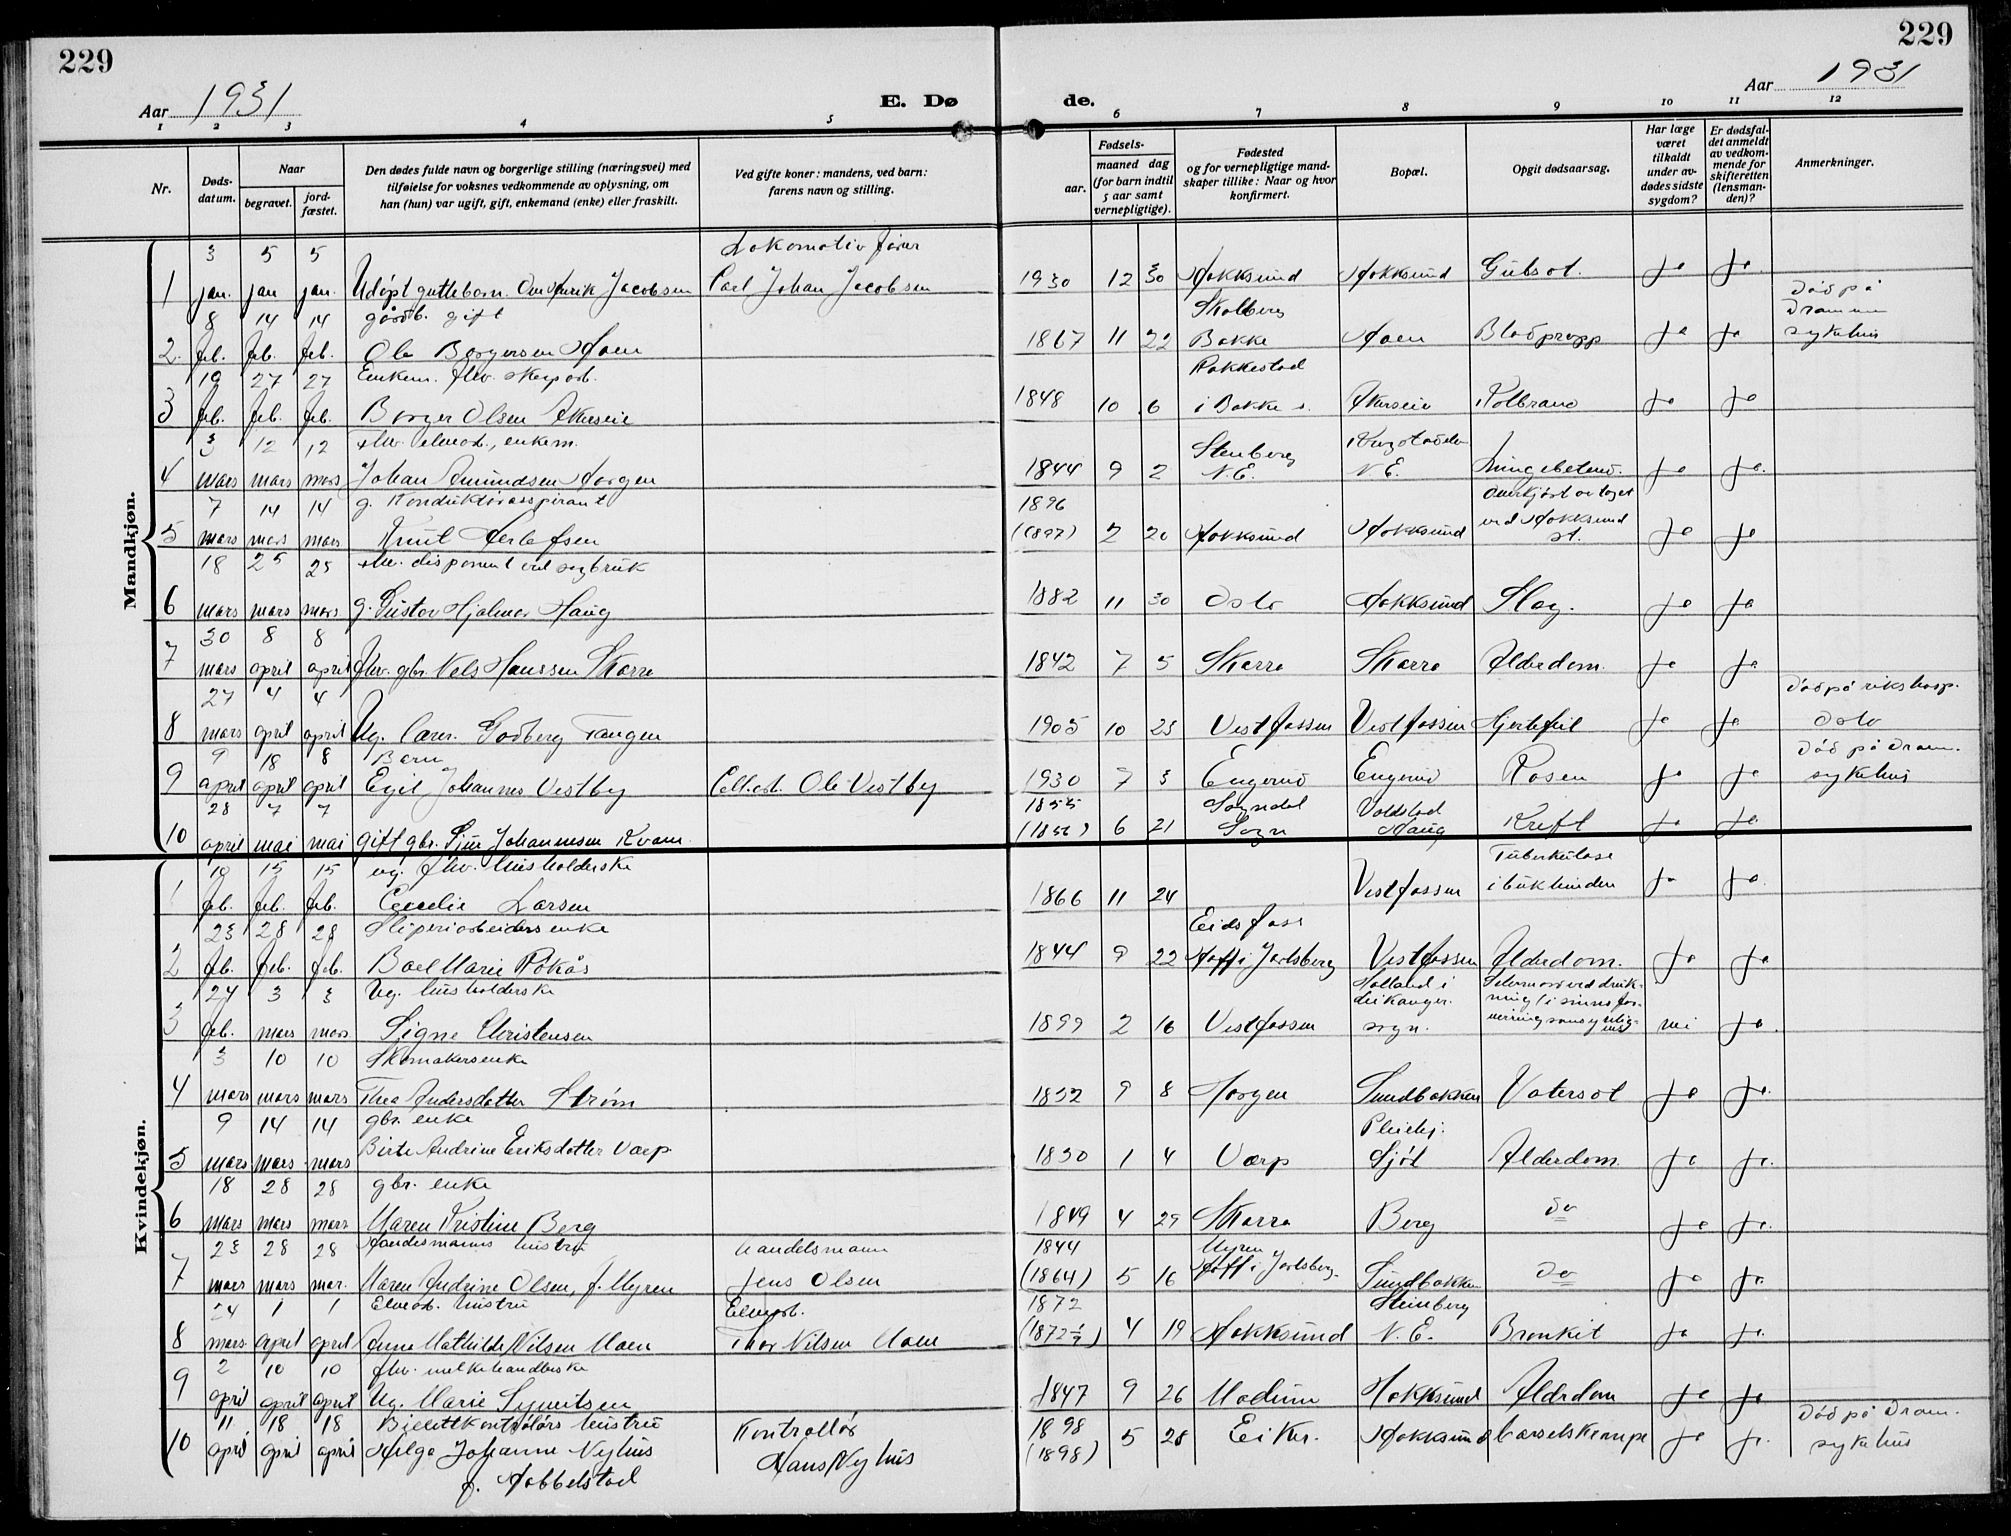 229
229
Aar 1931
E. Dø
de.
Aar 1931
1 2 3 4 5 6 7 8 9 10 11 12
Nr.
Døds-datum.
Naar
begravet.
jord-fæstet.
Den dødes fulde navn og borgerlige stilling (næringsvei) med
tilføielse for voksnes vedkommende av oplysning, om
han (hun) var ugift, gift, enkemand (enke) eller fraskilt.
Ved gifte koner: mandens, ved barn:
farens navn og stilling.
Fødsels-
aar.
maaned dag
(for barn indtil
5 aar samt
vernepligtige).
Fødested
og for vernepligtige mand-
skaper tillike: Naar og hvor
konfirmert.
Bopæl.
Opgit dødsaarsag.
Har læge
været
tilkaldt
under av-
dødes sidste
sygdom?
Er dødsfal-
det anmeldt
av vedkom-
mende for
skifteretten
(lensman-
den)?
Anmerkninger.
Mandkjøn.
3 5 5 Lokomotivfører
1 jan. jan jan. Udøpt guttebarn. Jacobsen Carl Johan Jacobsen 1930 12 30 Hokksund Hokksund Gulsot. ja ja
8 14 14 gårdb. gift Stolberg Død på Drammen
2. feb. feb. feb. Ole Borgersen Hoen 1867 11 22 Bakke Hoen Blodpropp ja ja sykehus
19 27 27 Enkem. fhv. Rakkestad
3 feb. feb. feb. Borger Olsen 1848 10 6 i Bakke s. Kolbrand ja ja
3 12 12 fhv. elvearb., enkem. Stenberg
4 mars mars mars Johan Amundsen Horgen 1844 9 2 N.E. N.E. Lungebetend. ja ja.
7 14 14 g. Konduktøraspirant 1896 Overkjørt av toget
5 mars mars mars Knut Herlofsen (1897) 2 20 Hokksund Hokksund ved Hokksund st. ja ja
18 25 25 fhv. disponent ved sagbruk
6 mars mars mars g. Gustav Hjalmar Haug 1882 11 30 Oslo Hokksund Slag. ja ja
30 8 8
7 mars april april fhv. gbr. Nels Hanssen Skarra 1842 7 5 Skarra Skarra Alderdom. ja ja
27 4 4 Død på rikshosp.
8 mars april april Ug. Godberg Tangen 1905 10 25 Vestfossen Vestfossen Hjertefeil ja ja Oslo
9 18 8 Barn Død på Dram.
9 april april april Egil Johannes Vestby Cell.arb. Ole Vestby 1930 7 3 Engerud Engerud Rosen ja ja sykehus
28 7 7 1855 Sogndal Voldstad
10 april mai mai gift gbr. Johannesen Kvam. (1856) 6 21 Sogn Haug Kreft ja ja
Kvindekjøn.
10 15 15 ug. fhv. husholderske Tuberkulose
1 feb. feb. feb. Cecelie Larsen 1866 11 24 Vestfossen i bukhinden ja ja.
23 28 28 Sliperiarbeiders enke Eidsfoss
2 feb. feb. feb. Boel Marie Råkås 1844 9 22 Hoff i Jarlsberg Vestfossen Alderdom. ja ja
27 3 3 Ug. husholderske Holland i Leikanger. Selvmord ved drukning (i sinnsforvirring
3 feb. mars mars Signe Christensen 1899 2 16 Vestfossen sogn. nei ja.
3 10 10 Skomakersenke
4 mars mars mars Thea Andersdatter Strøm 1852 9 8 Horgen Sundbakken Vatersot ja ja.
9 14 14 gbr. enke Pleiehj.
5 mars mars mars Birte Andrine Eriksdatter Varp 1850 1 4 Varp Sjøl Alderdom. ja ja.
18 28 28 gbr. enke
6 mars mars mars Maren Kristine Berg 1849 4 29 Skarra Berg do ja ja.
23 28 28 Handelsmanns hustru Handelsmann 1844 Myren
7 mars mars mar. Maren Andrine Olsen, f. Myren Jens Olsen (1864) 5 16 Hoff i Jarlsberg. Sundbakken do ja ja.
24 1 1 Elvearb. hustru Elvearb. 1872 Steinberg
8 mars april april Anne Mathilde Nilsen Moen Thor Nilsen Moen (1872) 4 19 Hokksund N.E. Bronkit ja ja.
2 10 10 fhv. melkehandlerske
9 april april april Ug. Marie Syvertsen 1847 9 26 Modum Hokksund Alderdom ja ja
11 18 18 Billettkontrolørs hustru Kontrollør 1898 Død på Dram.
10 april april april Helga Johanne Nyhus Hans Nyhus (1898) 5 28 Eiker. Hokksund barselskrampe ja ja. sykehus
f. Hobbelstad